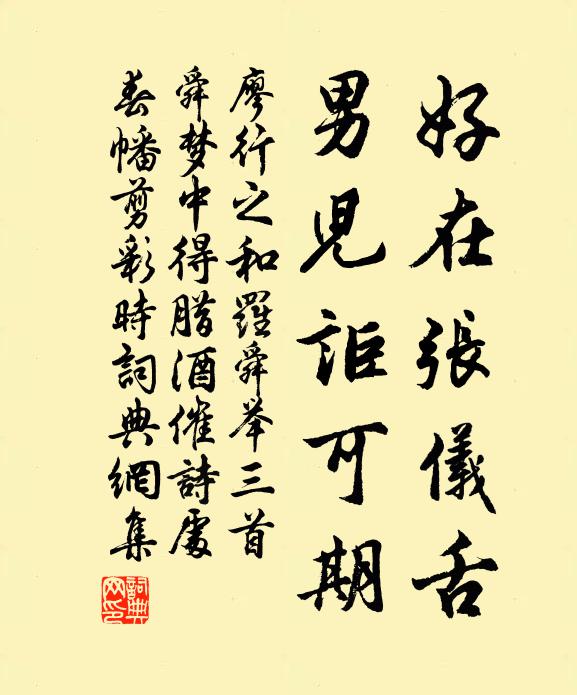 好在張儀舌
男児詎可期
廖行之和羅舜举三首
舜梦中得腊酒催詩處
春幡剪彩時詞典網集
詞典